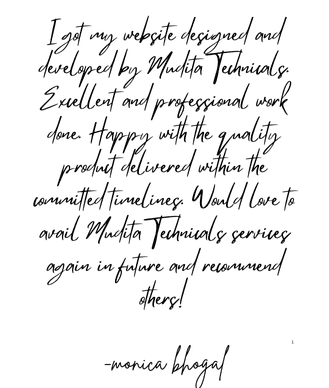 I got my website designed and
developed by Mudita Technicals.
Excellent and professional work
done. Happy with the quality
product delivered within the
committed timelines. Would love to
avail Mudita Technicals services
again in future and recommend
others!
1
-monica bhogal